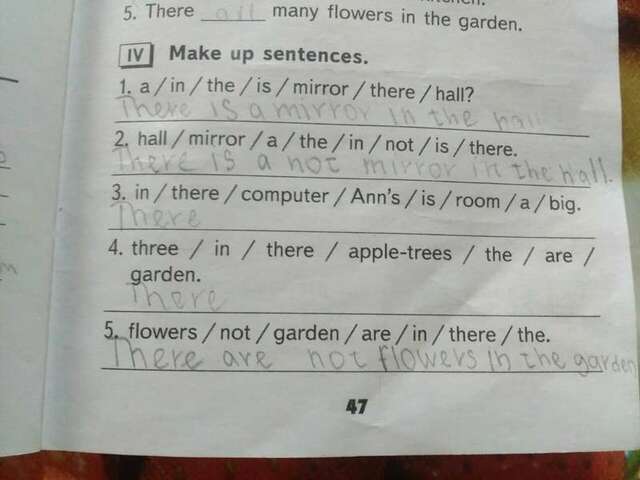 5. There are many flowers in the garden.
IV Make up sentences.
1. a / in / the / is / mirror / there / hall?
There is a mirror in the hall
2. hall / mirror / a / the / in / not / is / there.
There is a not mirror in the hall.
3. in / there / computer / Ann's / is / room / a / big.
There
4. three / in / there / apple-trees / the / are /
garden.
There
5. flowers / not / garden / are / in / there / the.
There are not flowers in the garden
47